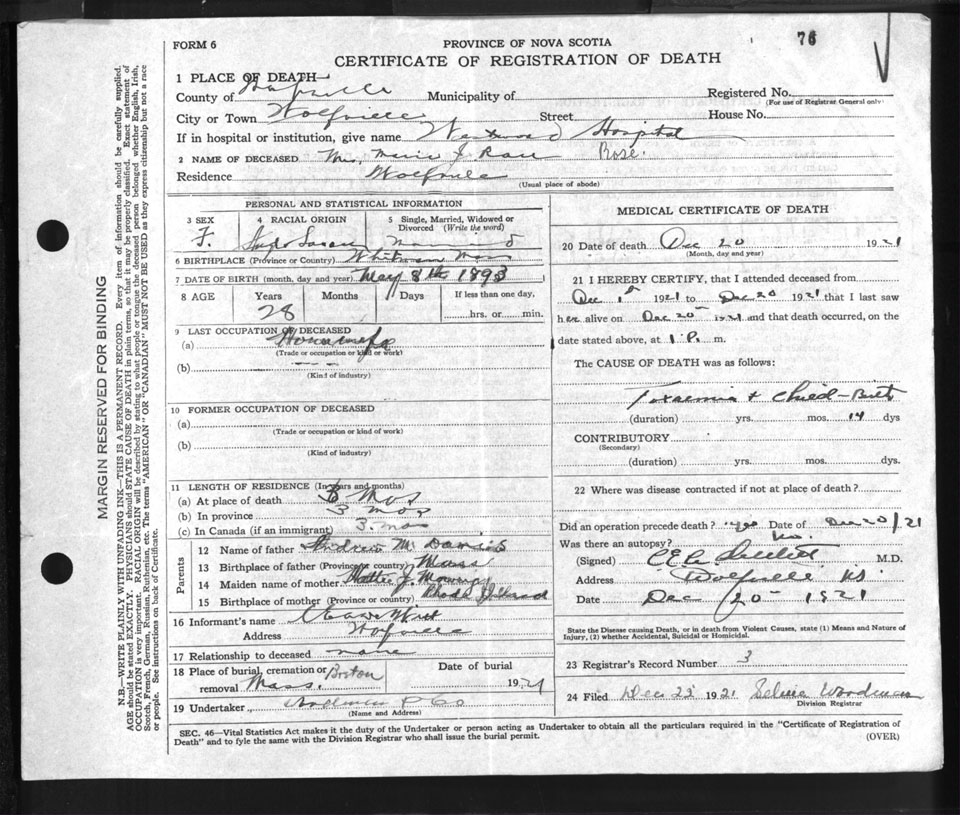 76
FORM 6
PROVINCE OF NOVA SCOTIA
CERTIFICATE OF REGISTRATION OF DEATH
1 PLACE OF DEATH—
County of Municipality of Registered No.
(For use of Registrar General only)
City or Town Wolfville Street House No.
If in hospital or institution, give name Westwood Hospital
2 NAME OF DECEASED Mrs. Marie J. Rose.
Residence Wolfville
(Usual place of abode)
PERSONAL AND STATISTICAL INFORMATION
3 SEX 4 RACIAL ORIGIN 5 Single, Married, Widowed or Divorced (Write the word)
F. Anglo Saxon Married
6 BIRTHPLACE (Province or Country) Whitman Mass
7 DATE OF BIRTH (month, day and year) May 8th 1893
8 AGE Years Months Days If less than one day,
28 hrs. or min.
9 LAST OCCUPATION OF DECEASED
(a) Housewife
(Trade or occupation or kind or work)
(b)
(Kind of industry)
10 FORMER OCCUPATION OF DECEASED
(a)
(Trade or occupation or kind of work)
(b)
(Kind of industry)
11 LENGTH OF RESIDENCE (In years and months)
(a) At place of death 3 Mos
(b) In province 3 mos
(c) In Canada (if an immigrant) 3 mos
Parents
12 Name of father Andrew M.
13 Birthplace of father (Province or country) Mass
14 Maiden name of mother Hattie J.
15 Birthplace of mother (Province or Country) Rhode Island
16 Informant's name
Address Wolfville
17 Relationship to deceased none
18 Place of burial, cremation or removal Boston Mass. Date of burial 1921
19 Undertaker
(Name and Address)
MEDICAL CERTIFICATE OF DEATH
20 Date of death Dec 20 1921
(Month, day and year)
21 I HEREBY CERTIFY, that I attended deceased from
Dec 1st 1921 to Dec 20 1921 that I last saw
her alive on Dec 20 1921 and that death occurred, on the
date stated above, at 1 P. m.
The CAUSE OF DEATH was as follows:
Toxaemia + Child-Birth
(duration) yrs. mos. 14 dys
CONTRIBUTORY
(Secondary)
(duration) yrs. mos. dys.
22 Where was disease contracted if not at place of death?
Did an operation precede death? Yes Date of Dec 20/21
Was there an autopsy? No.
(Signed) M.D.
Address Wolfville NS.
Date Dec 20 1921
State the Disease causing Death, or in death from Violent Causes, state (1) Means and Nature of
Injury, (2) whether Accidental, Suicidal or Homicidal.
23 Registrar's Record Number 3
24 Filed Dec 22 1921
Division Registrar
SEC. 46—Vital Statistics Act makes it the duty of the Undertaker or person acting as Undertaker to obtain all the particulars required in the "Certificate of Registration of
Death" and to fyle the same with the Division Registrar who shall issue the burial permit. (OVER)
MARGIN RESERVED FOR BINDING
N.B.—WRITE PLAINLY WITH UNFADING INK—THIS IS A PERMANENT RECORD. Every item of information should be carefully supplied.
AGE should be stated EXACTLY. PHYSICIANS should STATE CAUSE OF DEATH in plain terms, so that it may be properly classified. Exact statement of
OCCUPATION is very important. RACIAL ORIGIN will be described by stating to what people or tongue the deceased person belonged whether English, Irish,
Scotch, French, German, Russian, Ruthenian, etc. The terms "AMERICAN" OR "CANADIAN" MUST NOT BE USED as they express citizenship but not a race
or people. See instructions on back of Certificate.